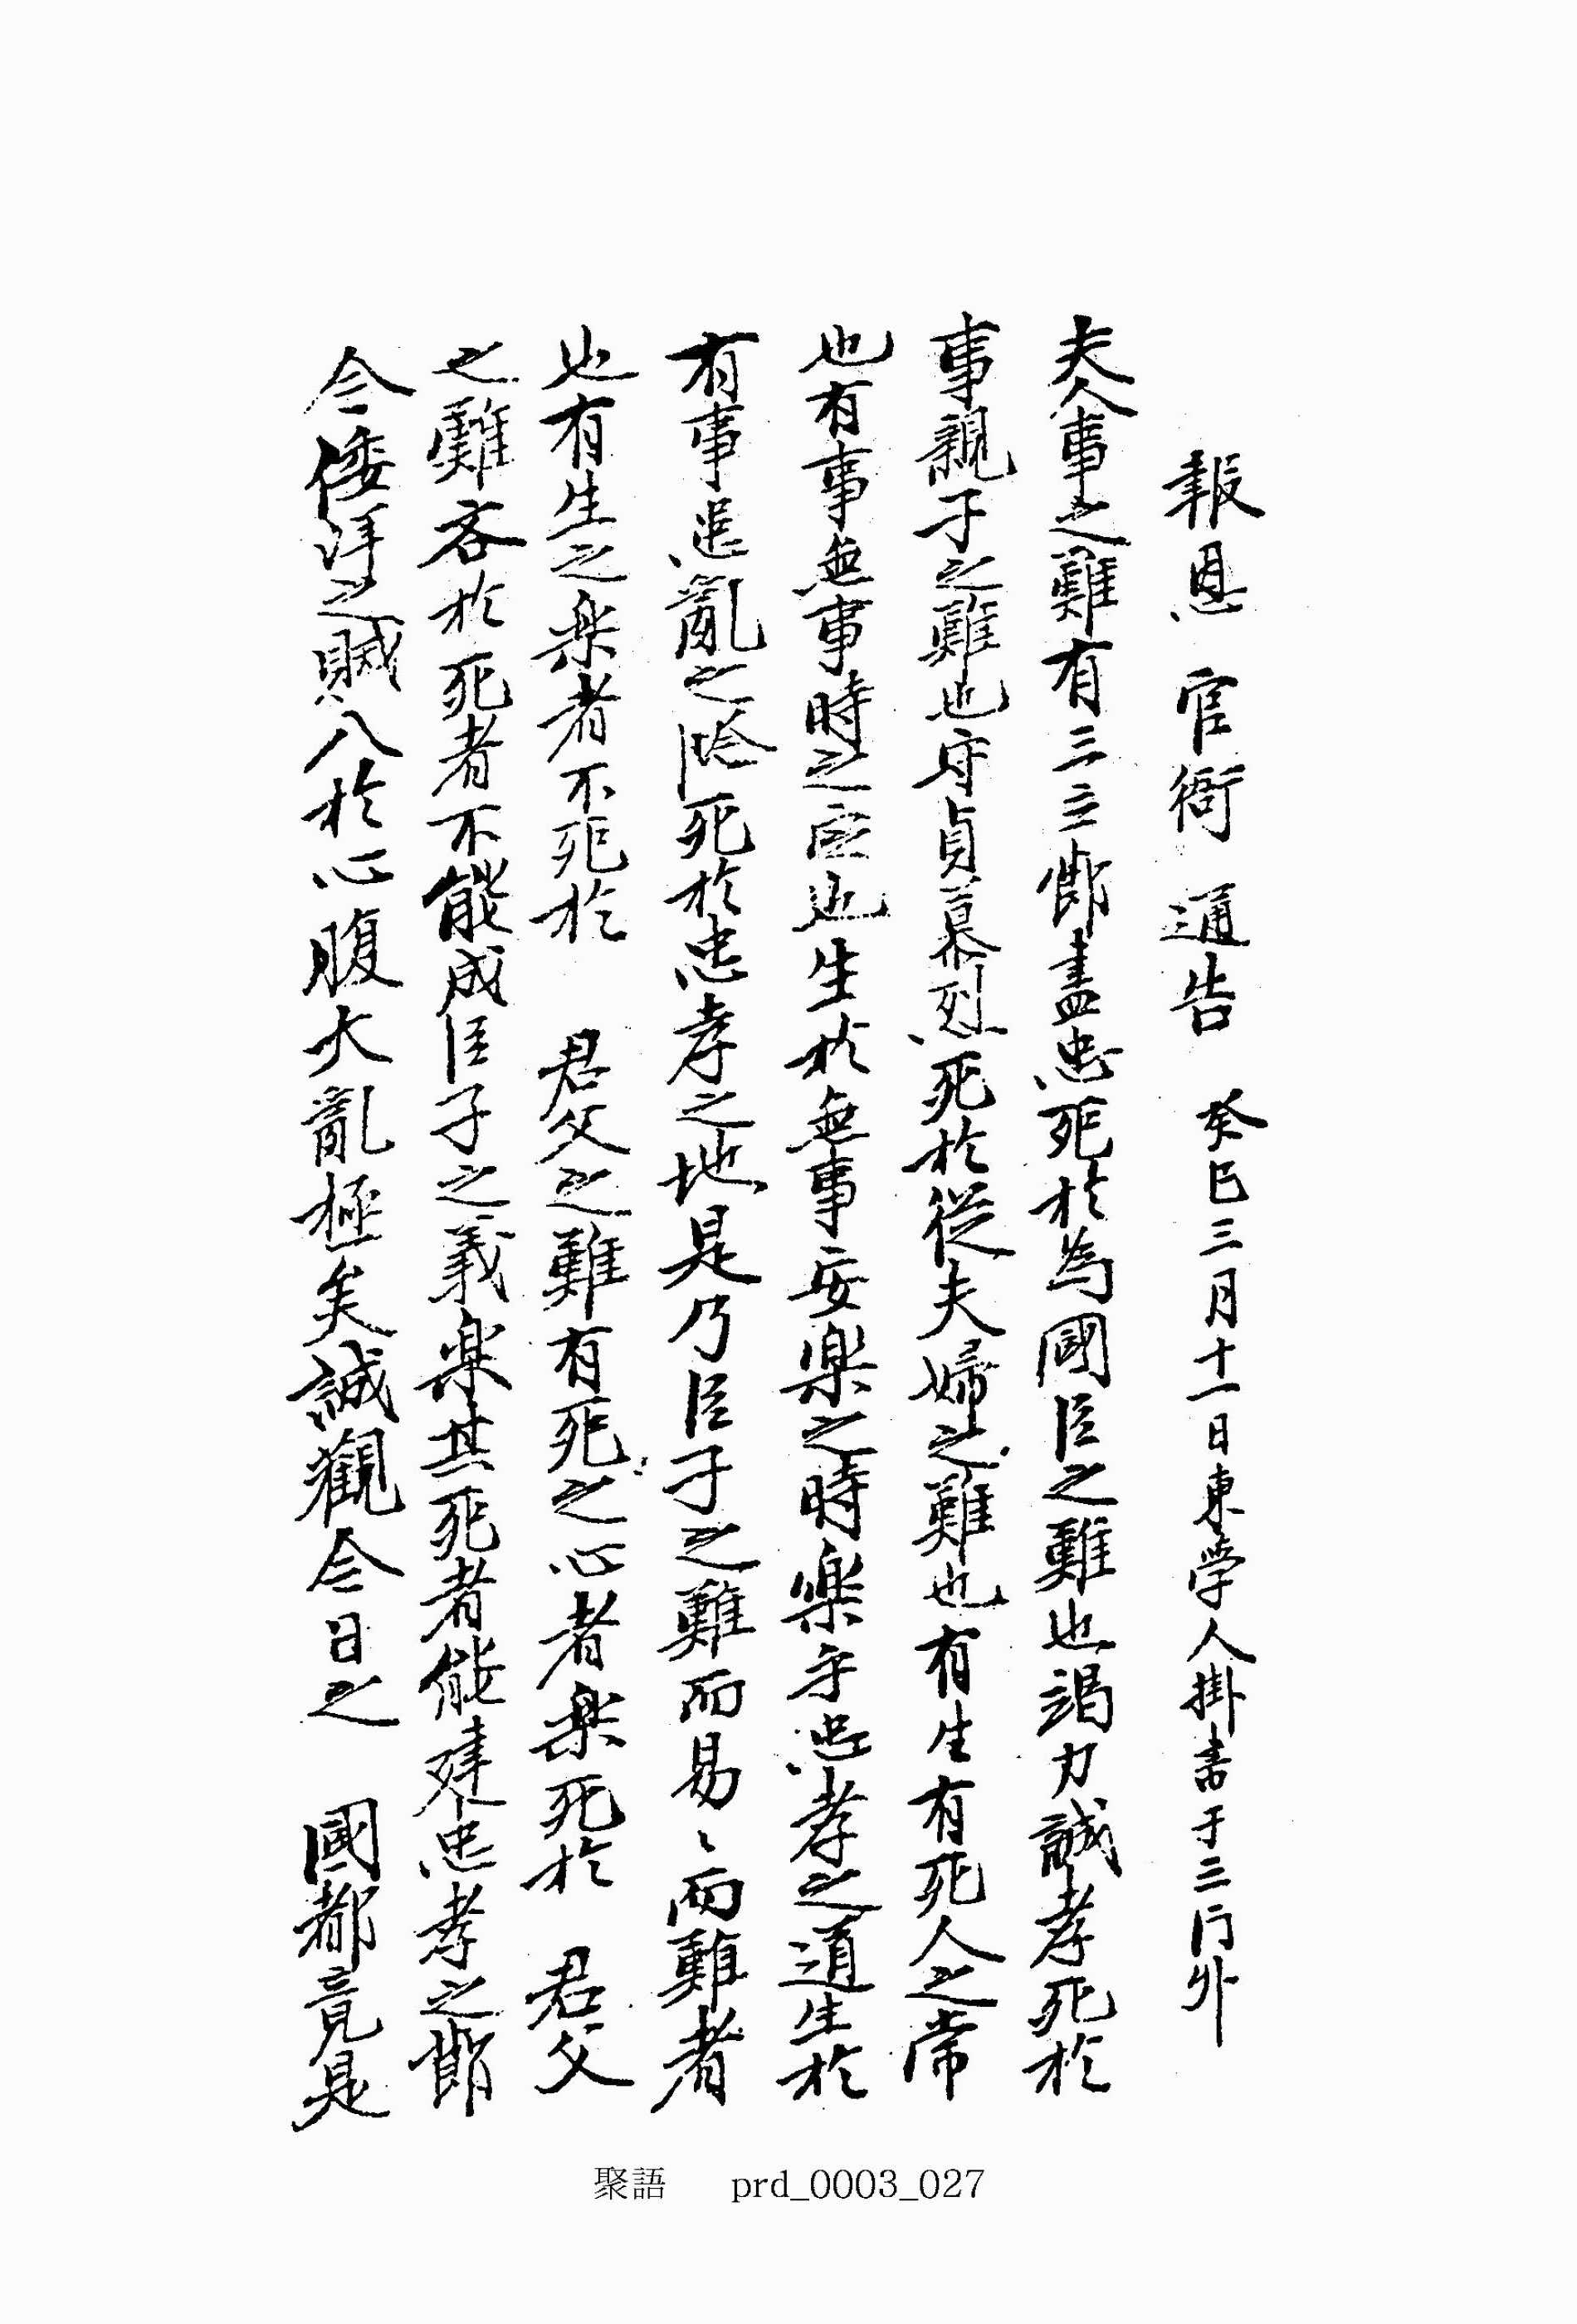 報恩 官衙 通告 癸巳三月十一日東学人掛書于三门外
夫人事之難有三立節盡忠死於為國臣之難也竭力誠孝死於
事親子之難也守貞慕烈死於從夫婦之難也有生有死人之常
也有事無事時之定也生於無事安樂之時樂乎忠孝之道生於
有事危亂之際死於忠孝之地是乃臣子之難而易〻而難者
也有生之楽者不死於 君父之難有死之心者楽死於 君父
之難吝於死者不能成臣子之義楽其死者能建忠孝之節
今倭洋之賊入於心腹大亂極矣誠觀今日之 國都竟是
聚語 prd_0003_027